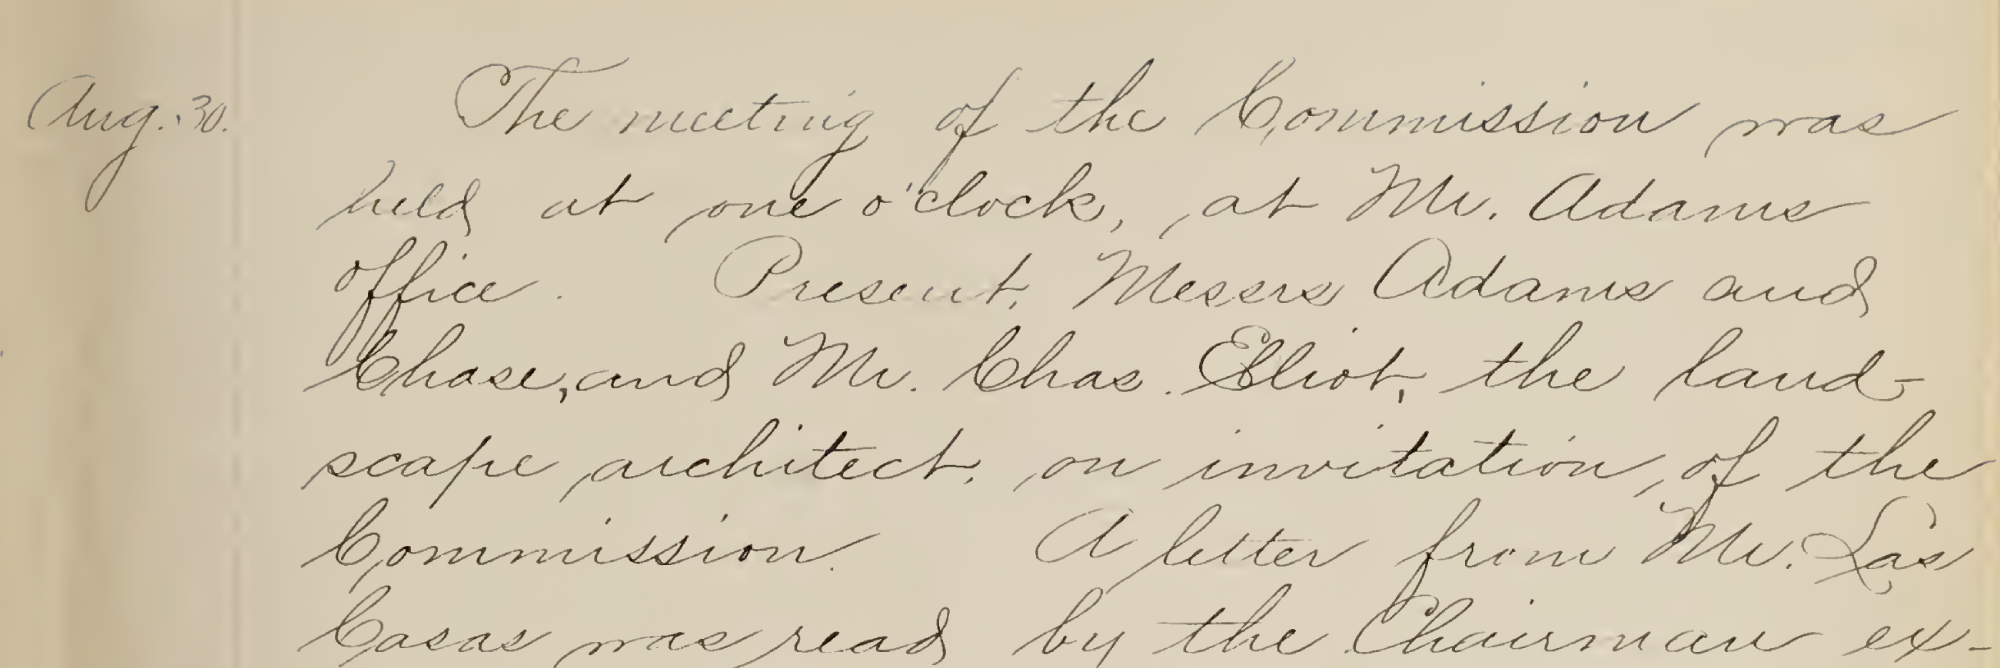 Aug. 30. The meeting of the Commission was
held at one o'clock, at Mr. Adams
office. Present, Messrs Adams and
Chase, and Mr. Chas. Eliot, the land-
scape architect, on invitation, of the
Commission. A letter from Mr. Las
Casas was read by the Chairman ex-